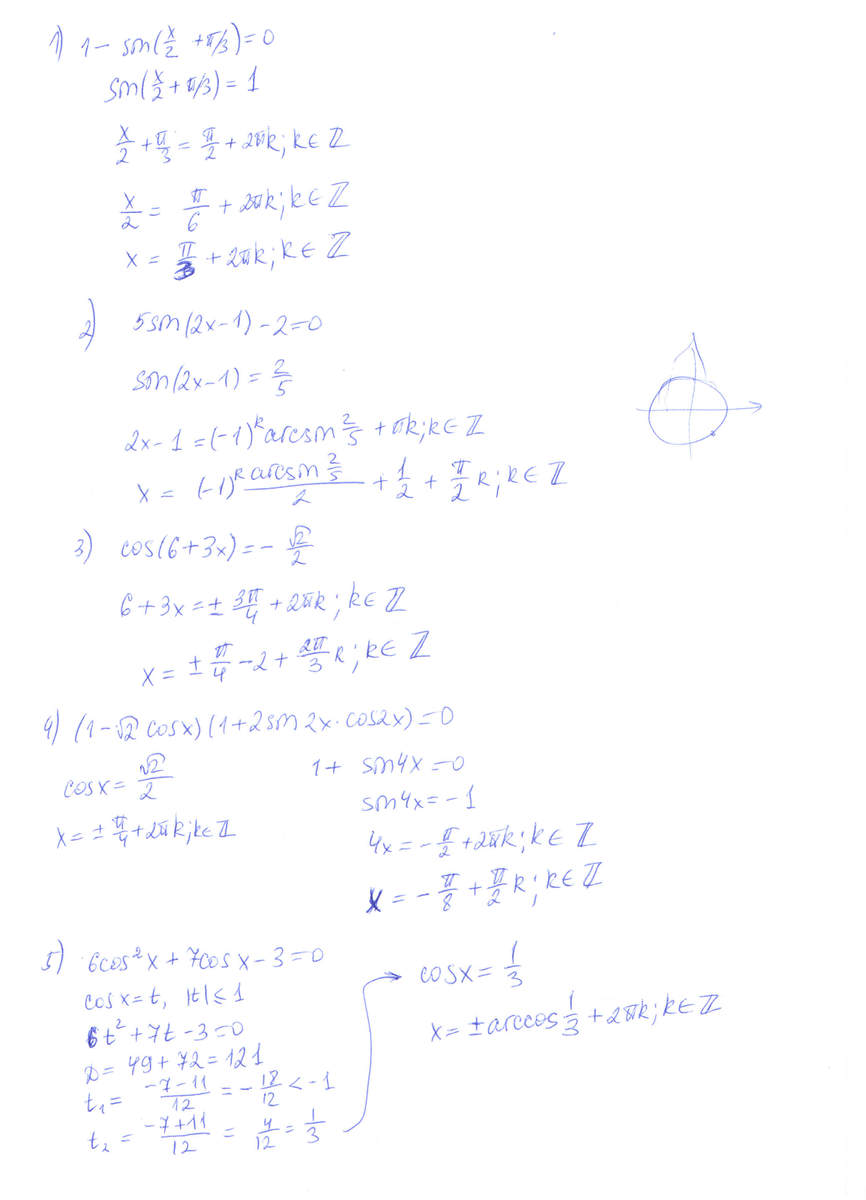 1) 1 - sin(x/2 + π/3) = 0
sin(x/2 + π/3) = 1
x/2 + π/3 = π/2 + 2πk; k ∈ ℤ
x/2 = π/6 + 2πk; k ∈ ℤ
x = π/3 + 2πk; k ∈ ℤ
2) 5sin(2x-1) - 2 = 0
sin(2x-1) = 2/5
2x - 1 = (-1)^k arcsin 2/5 + πk; k ∈ ℤ
x = (-1)^k (arcsin 2/5)/2 + 1/2 + π/2 k; k ∈ ℤ
3) cos(6+3x) = - √2/2
6+3x = ± 3π/4 + 2πk; k ∈ ℤ
x = ± π/4 - 2 + 2π/3 k; k ∈ ℤ
4) (1-√2 cosx)(1+2sin 2x·cos2x) = 0
cosx = √2/2
x = ± π/4 + 2πk; k ∈ ℤ
1 + sin4x = 0
sin4x = -1
4x = - π/2 + 2πk; k ∈ ℤ
x = - π/8 + π/2 k; k ∈ ℤ
5) 6cos²x + 7cosx - 3 = 0
cosx = t, |t| ≤ 1
6t² + 7t - 3 = 0
D = 49 + 72 = 121
t₁ = (-7-11)/12 = - 18/12 < -1
t₂ = (-7+11)/12 = 4/12 = 1/3
cosx = 1/3
x = ± arccos 1/3 + 2πk; k ∈ ℤ